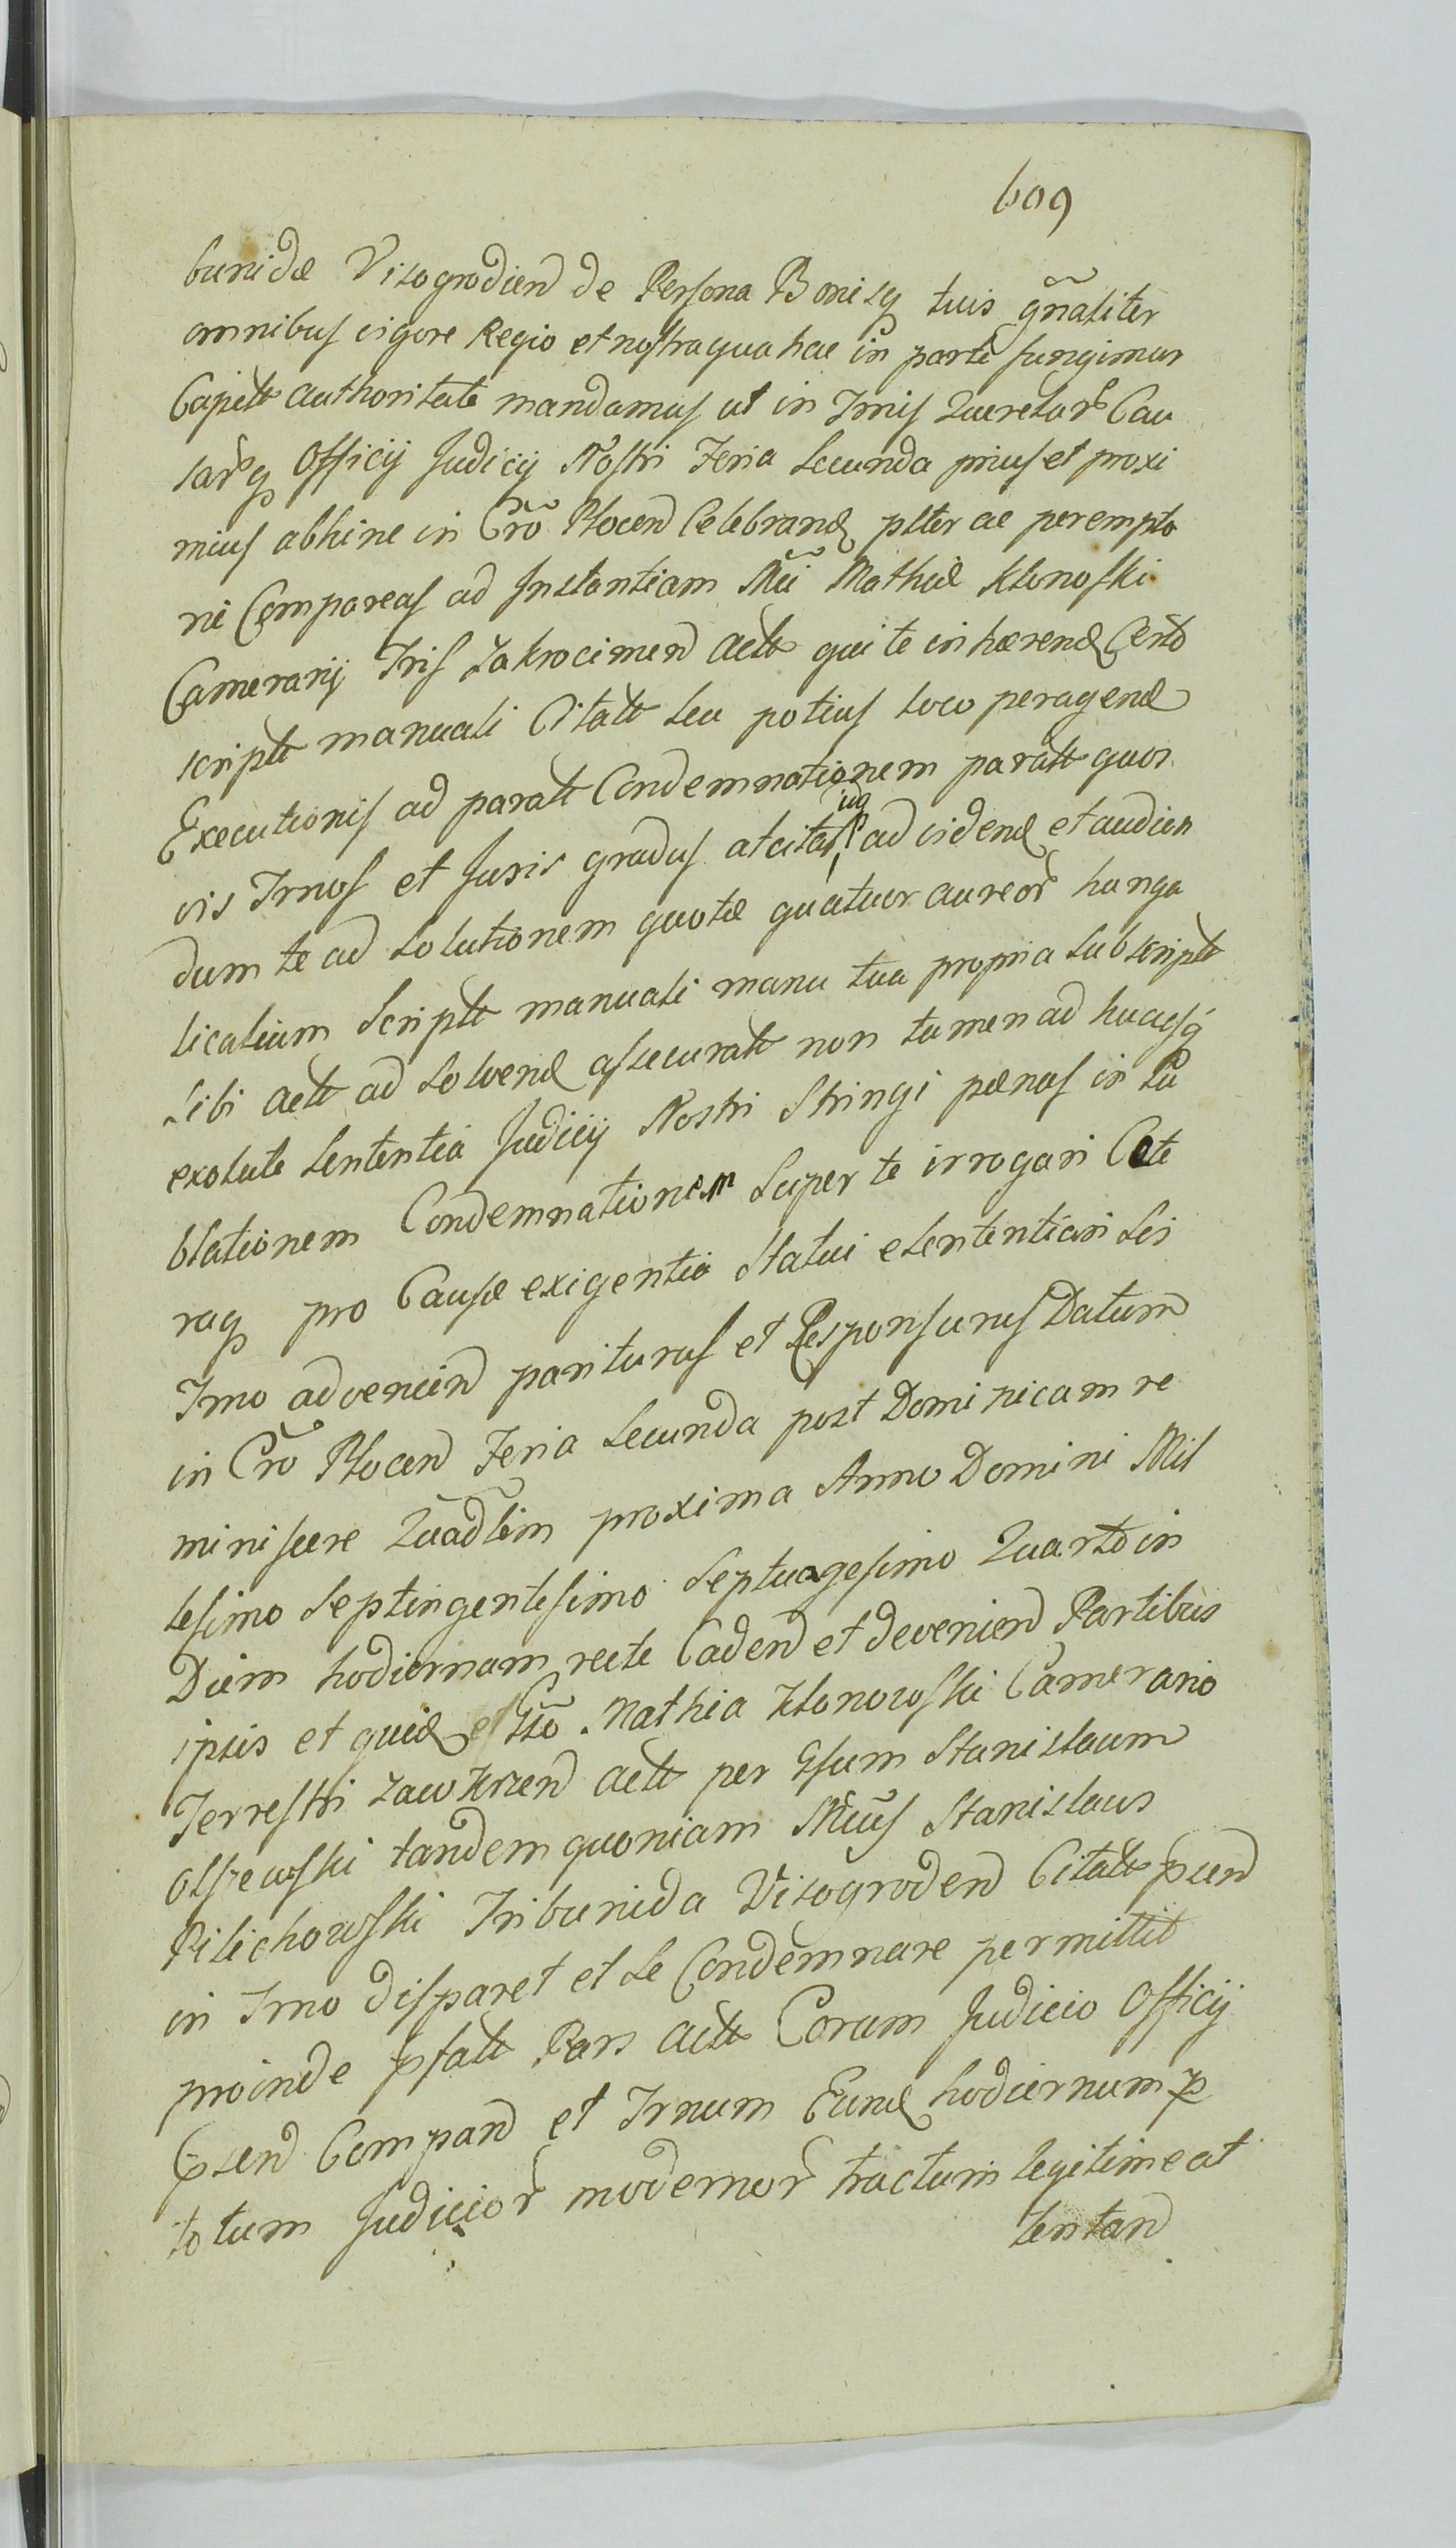 609
bunidæ Visogrodien de Persona Bonisq tuis gñaliter
omnibus vigore Regio et nostra qua hac in parte fungimur
Capitt authoritate mandamus ut in Trnis Querelar Cau
sarq Officij Judicij Nostri Feria Secunda prius et proxi
mius abhinc in Cro Plocen Celebrand pltter ac perempto
rie Compareas ad Instantiam Mci Mathiæ Klonoski
Camerarij Tris Zakrocimen actt qui te inhærend Certo
scriptt manuali Citatt seu potius loco peragend
Executionis ad paratt Condemnationem paratt quos
vis Trnos et Juris gradus atcitat ad vidend et audien
dum te ad solutionem quotæ quatuor aureor hunga
licalium Scriptt manuali manu tua propria subscriptt
sibi actt ad solvend assecuratt non tamen ad hucusq
exolutæ sententia Judicij Nostri Stringi pænas in Su
blationem Condemnationem super te irrogari Cete
raq pro Causæ exigentia Statui esententiari Sis
Trno advenien pariturus et Responsurus Datum
in Cro Plocen Feria Secunda post Dominicam re
miniscere Quadlem proxima Anno Domini Mil
lesimo Septingentesimo Septuagesimo Quarto in
Diem hodiernam recte Caden et devenien Partibus
ipsis et quid Mathia Klonowski Camerario
Terrestri Zawkrzen actt per Gsum Stanislaum
Olszewski tandem quoniam Mcus Stanislaus
Pilichowski Tribunida Visogroden Citatt psen
in Trno disparet et se Condemnare permittit
proinde psatt Pars actt Coram Judicio Officij
psen Compan et Trnum Eund hodiernum p
totum Judicior modernor tractum legitime at
tentan